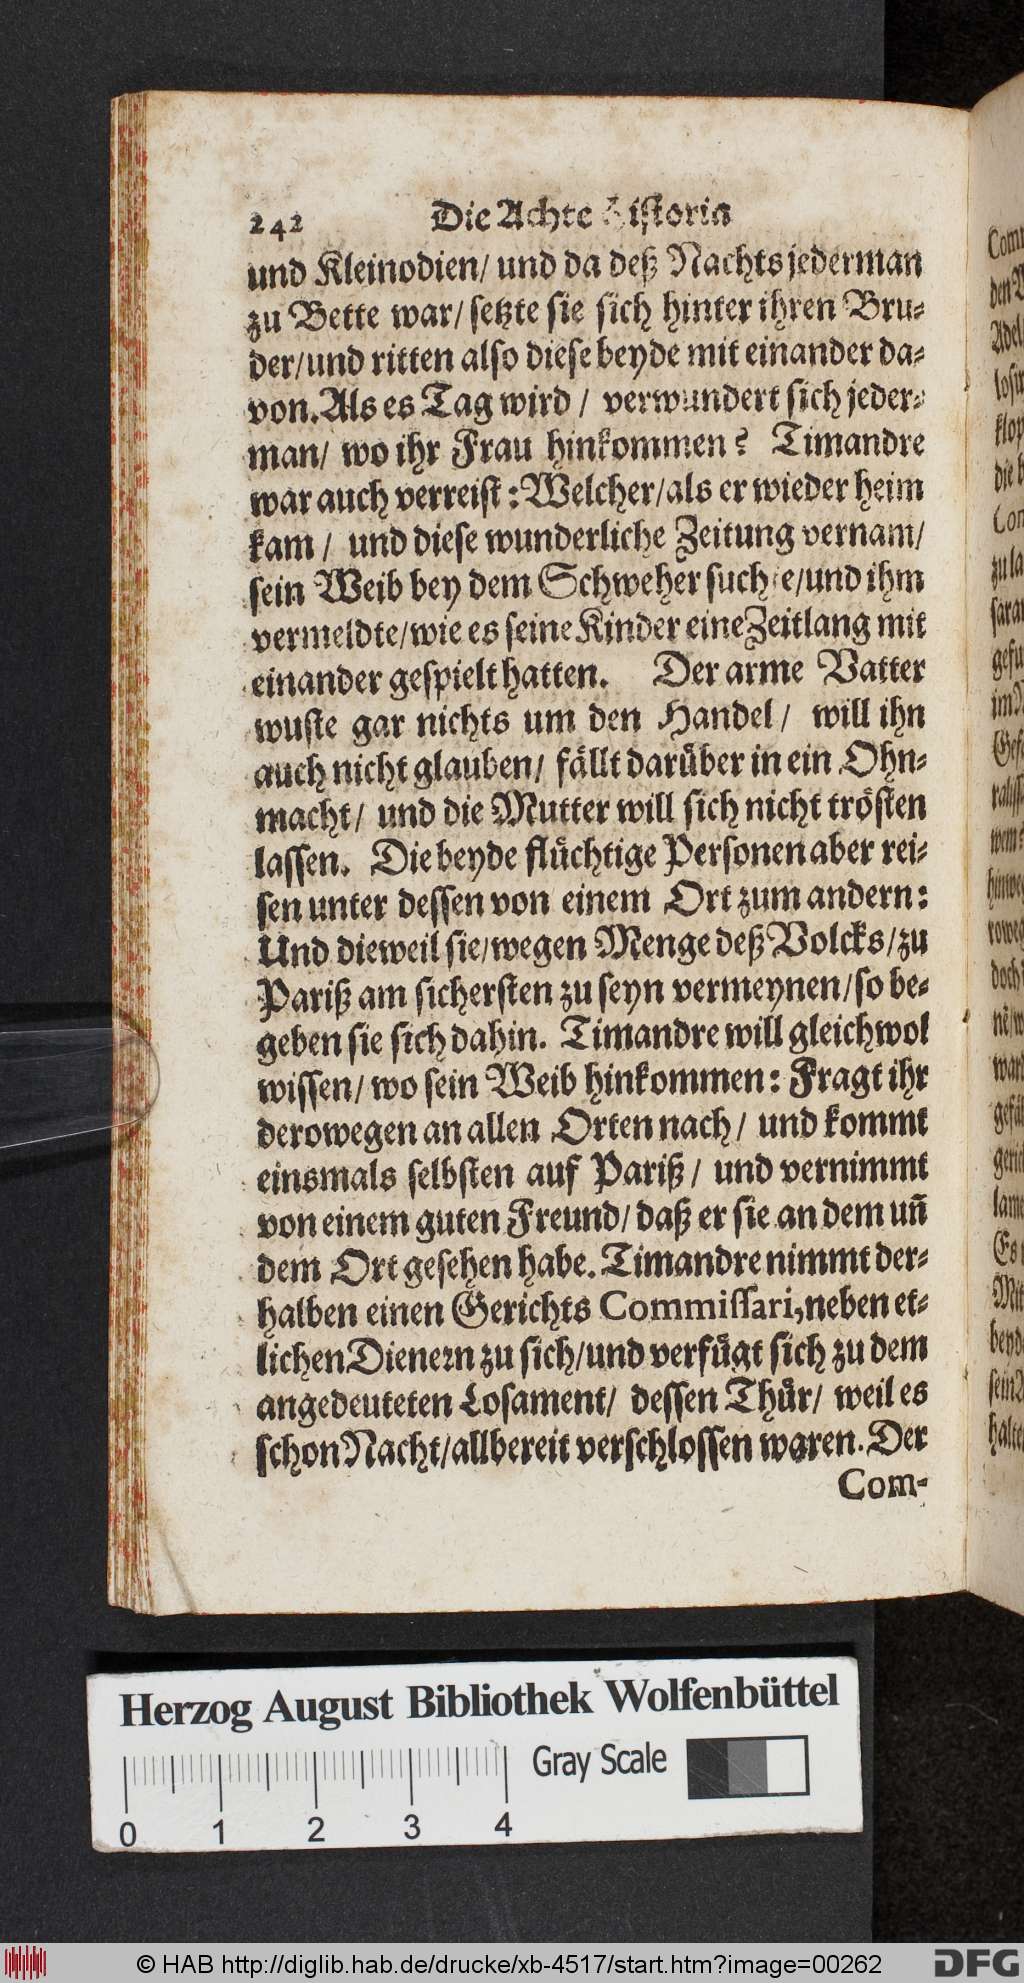 242 Die Achte Historia
und Kleinodien/ und da deß Nachts jederman
zu Bette war/ setzte sie sich hinter ihren Bru-
der/ und ritten also diese beyde mit einander da-
von. Als es Tag wird / verwundert sich jeder-
man/ wo ihr Frau hinkommen? Timandre
war auch verreist: Welcher/ als er wieder heim
kam / und diese wunderliche Zeitung vernam/
sein Weib bey dem Schweher suchte/ und ihm
vermeldte/ wie es seine Kinder eine Zeitlang mit
einander gespielt hatten. Der arme Vatter
wuste gar nichts um den Handel/ will ihn
auch nicht glauben/ fällt darüber in ein Ohn-
macht/ und die Mutter will sich nicht trösten
lassen. Die beyde flüchtige Personen aber rei-
sen unter dessen von einem Ort zum andern:
Und dieweil sie/ wegen Menge deß Volcks/ zu
Pariß am sichersten zu seyn vermeynen/ so be-
geben sie sich dahin. Timandre will gleichwol
wissen/ wo sein Weib hinkommen: Fragt ihr
derowegen an allen Orten nach/ und kommt
einsmals selbsten auf Pariß/ und vernimmt
von einem guten Freund/ daß er sie an dem uñ
dem Ort gesehen habe. Timandre nimmt der-
halben einen Gerichts Commissari, neben et-
lichen Dienern zu sich/ und verfügt sich zu dem
angedeuteten Losament/ dessen Thür/ weil es
schon Nacht/ allbereit verschlossen waren. Der
Com-
Herzog August Bibliothek Wolfenbüttel
Gray Scale
0 1 2 3 4
© HAB http://diglib.hab.de/drucke/xb-4517/start.htm?image=00262
DFG